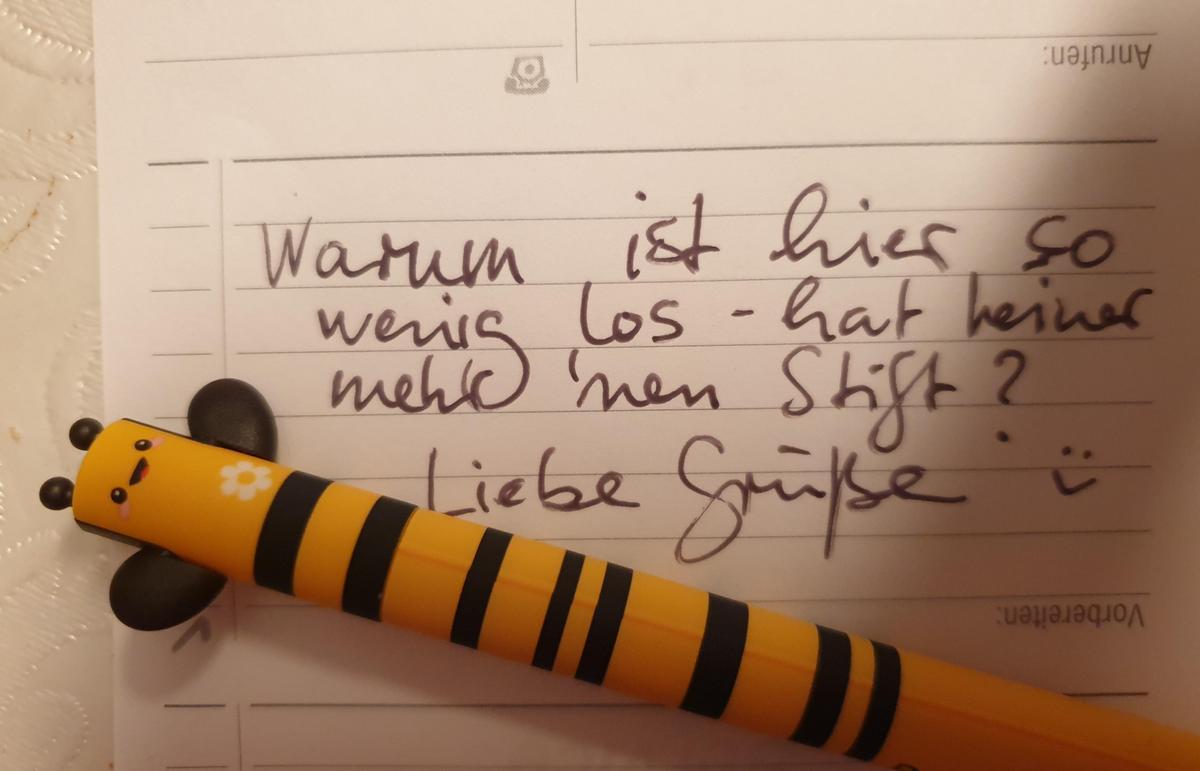 Anrufen:
Warum ist hier so
wenig los - hat keiner
mehr 'nen Stift?
Liebe Grüße :)
Vorbereiten: